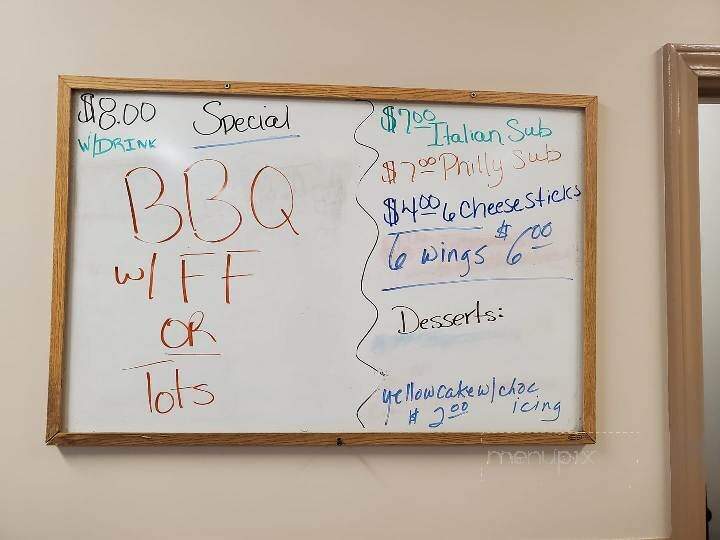 $8.00 Special
W/DRINK
BBQ
w/ FF
OR
Tots
$7.00 Italian Sub
$7.00 Philly Sub
$4.00 6 Cheese sticks
6 wings $6.00
Desserts:
yellow cake w/ choc
$2.00 icing
menupix